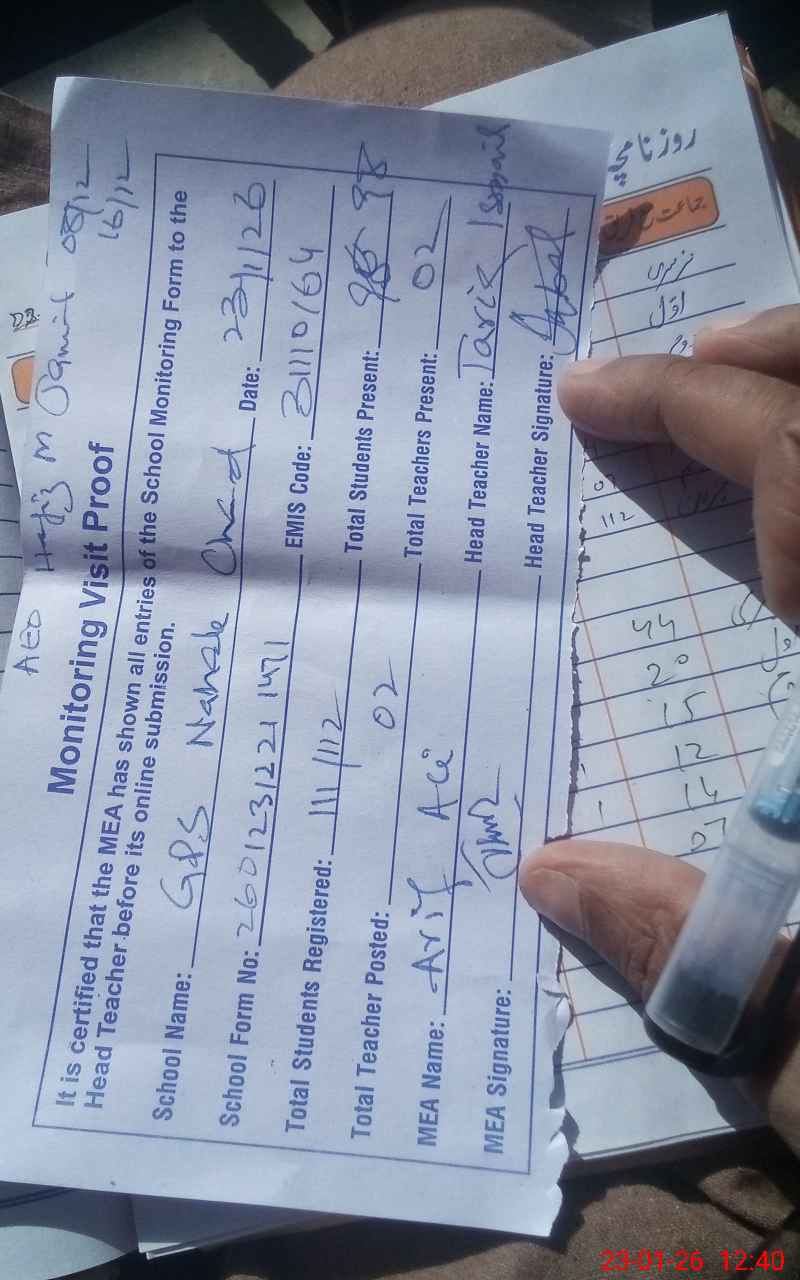 AEO Hafiz M Jamil 08/12
16/12
Monitoring Visit Proof
It is certified that the MEA has shown all entries of the School Monitoring Form to the
Head Teacher before its online submission.
School Name: GPS Nanak Chand Date: 23/1/26
School Form No: 260123122 1 1471 EMIS Code: 31110164
Total Students Registered: 111/112 Total Students Present: 98
Total Teacher Posted: 02 Total Teachers Present: 02
MEA Name: Arif Ali Head Teacher Name: Tariq Ismail
MEA Signature: Head Teacher Signature:
روزنامچہ
جماعت
نرسری
اوّل
دوم
112
44
20
15
12
14
07
23-01-26 12:40